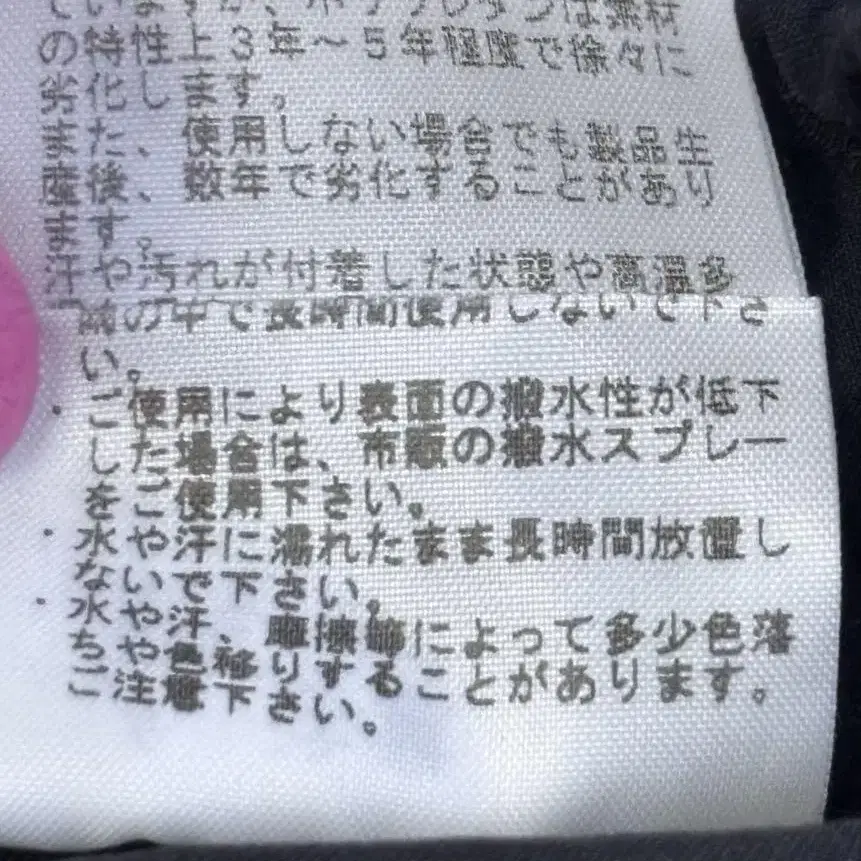 の特性上3年～5年程度で徐々に
劣化します。
また、使用しない場合でも製品生
産後、数年で劣化することがあり
ます。
汗や汚れが付着した状態や高温多
の中で長時間使用しないで下さ
い。
・ご使用により表面の撥水性が低下
した場合は、市販の撥水スプレー
をご使用下さい。
・水や汗に濡れたまま長時間放置し
ないで下さい。
・水や汗、摩擦等によって多少色落
ちや色移りすることがあります。
ご注意下さい。